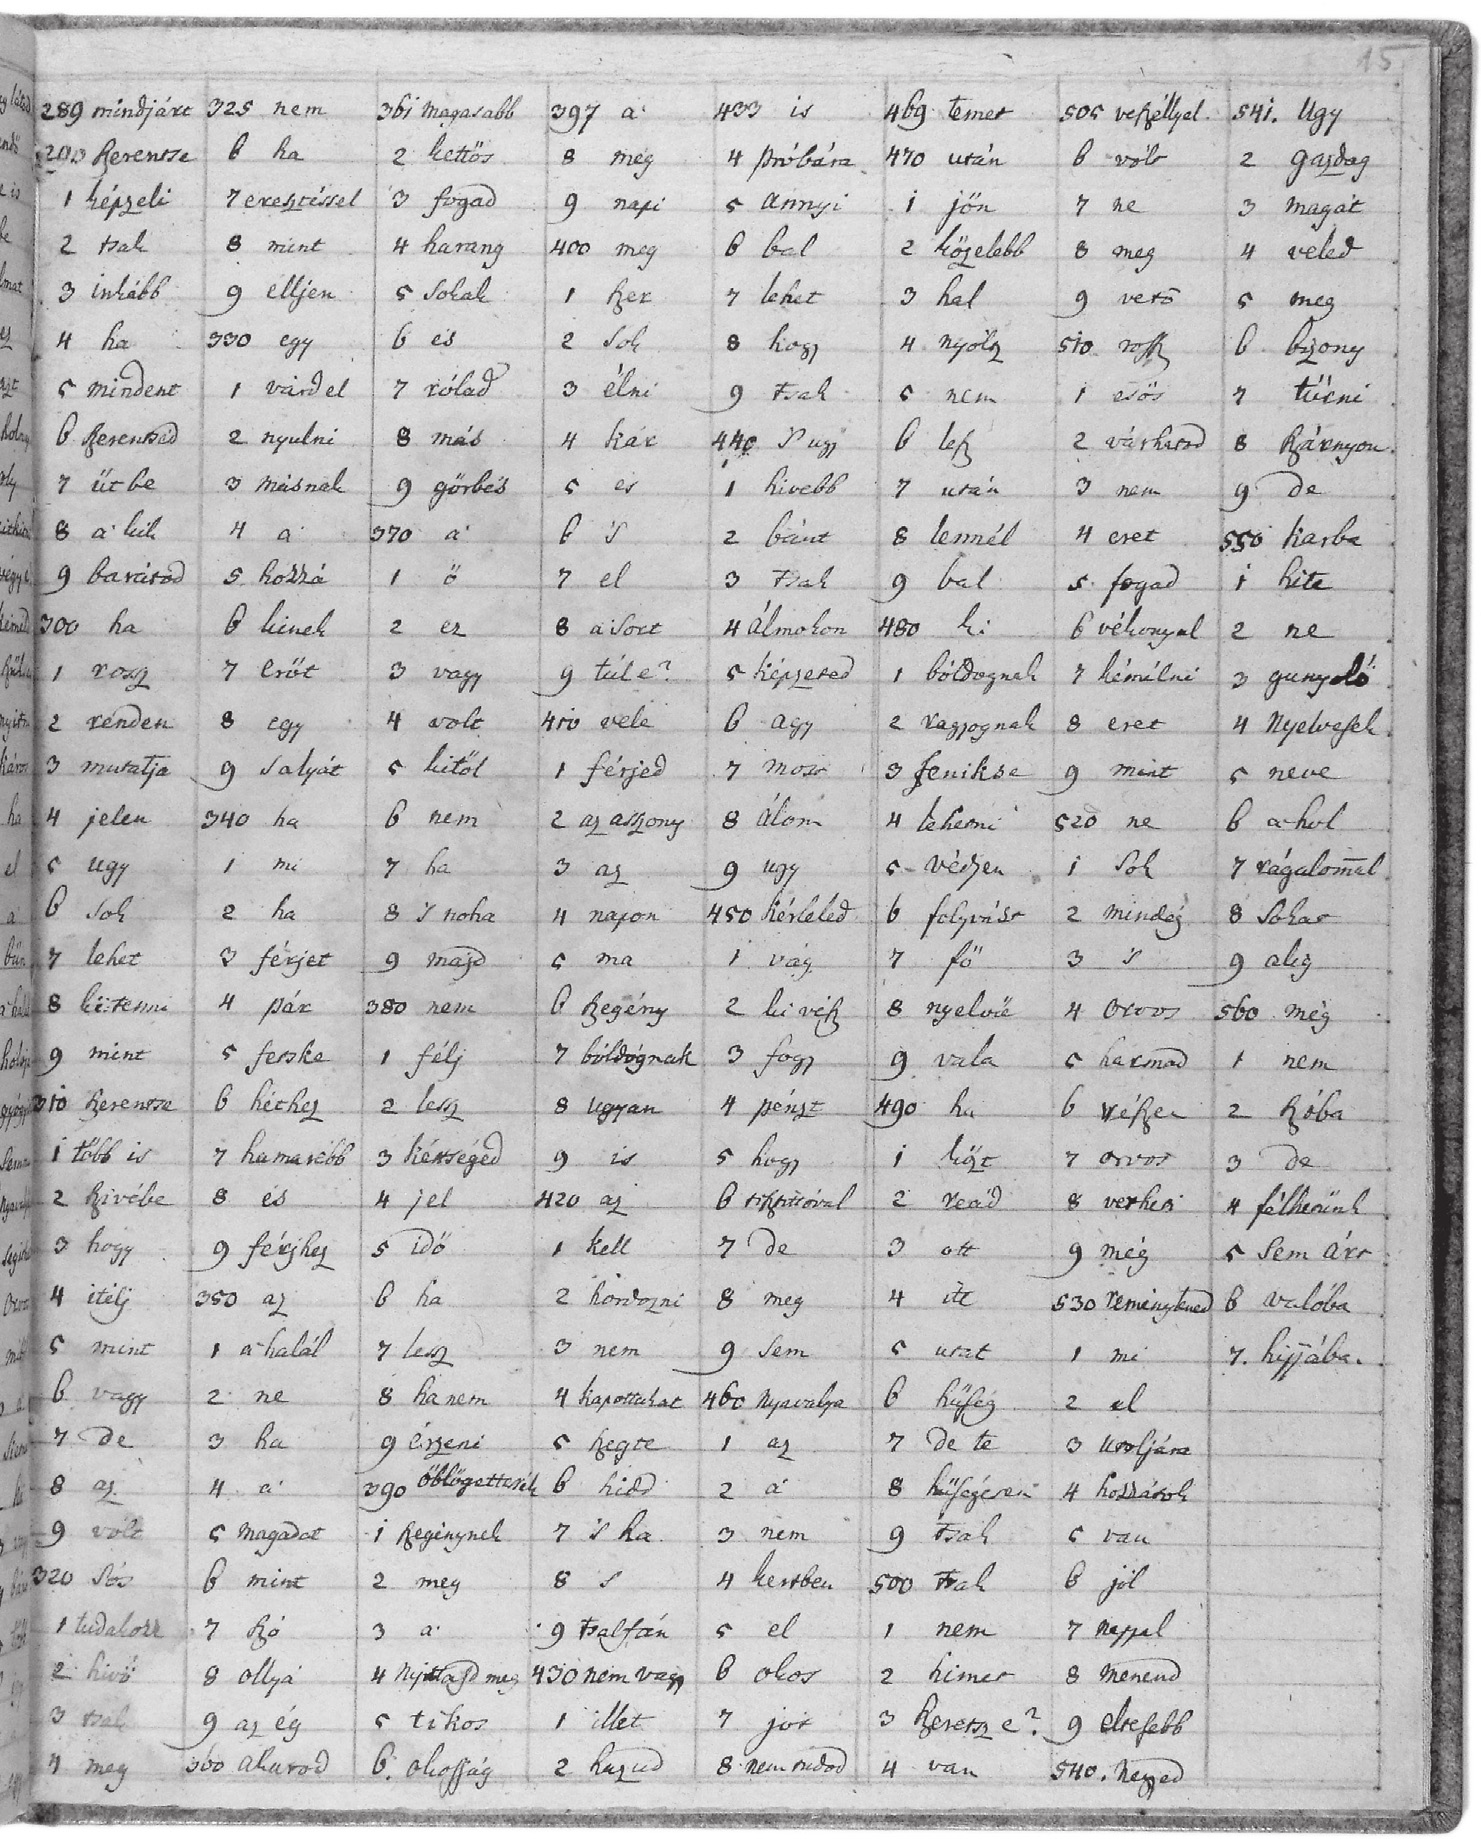 15
289 mindjárt 325 nem 361 magasabb 397 a' 433 is 469 temet 505 veszéllyel. 541. Ugy
290 szerentse 6 ha 2 kettös 8 még 4 próbára 470 után 6 vólt 2 gazdag
1 képzeli 7 eresztéssel 3 fogad 9 napi 5 annyi 1 jön 7 ne 3 magát
2 tsak 8 mint 4 harang 400 meg 6 bal 2 közelebb 8 meg 4 veled
3 inkább 9 elljen 5 sokak 1 szer 7 lehet 3 hal 9 verö 5 meg
4 ha 330 egy 6 és 2 sok 8 hogy 4 nyólz 510 rossz 6 bizony
5 mindent 1 várd el 7 rólad 3 élni 9 tsak 5 nem 1 esös 7 tüírni
6 szerentséd 2 nyulni 8 más 4 kár 440 's ugy 6 lesz 2 várhatod 8 szárnyon.
7 ütbe 3 másnak 9 görbés 5 es 1 hivebb 7 után 3 nem 9 de
8 a' kik 4 a' 370 a' 6 's 2 bánt 8 lennél 4 eret 550 karba
9 barátod 5 hozzá 1 ö 7 el 3 tsak 9 bal 5 fogad 1 hite
300 ha 6 kinek 2 ez 8 a' sort 4 álmokon 480 ki 6 vékonyul 2 ne
1 rossz 7 eröt 3 vagy 9 túl e? 5 képzeted 1 bóldognak 7 kémélni 3 gunyoló
2 renden 8 egy 4 volt 410 vele 6 agy 2 ragyognak 8 eret 4 nyelvesek
3 mutatja 9 salyát 5 kitöl 1 férjed 7 most 3 feniksе 9 mint 5 neve
4 jelen 340 ha 6 nem 2 az asszony 8 álom 4 lehetni 520 ne 6 a' hol
5 ugy 1 mi 7 ha 3 az 9 ugy 5 védjen 1 sok 7 rágalom̄al
6 sok 2 ha 8 's noha 4 napon 450 kérleled 6 folyvást 2 mindég 8 sokat
7 lehet 3 férjet 9 majd 5 ma 1 vág 7 fö 3 's 9 alig
8 ki tenni 4 pár 380 nem 6 szegény 2 ki vész 8 nyelvü 4 orvos 560 még
9 mint 5 fetske 1 félj 7 bóldógnak 3 fogy 9 vala 5 harmad 1 nem
310 szerentse 6 héthez 2 lesz 8 ugyan 4 pénzt 490 ha 6 részen 2 szóba
1 több is 7 hamarébb 3 kétséged 9 is 5 hogy 1 közt 7 orvos 3 de
2 szivébe 8 és 4 jel 420 az 6 2 reád 8 verheti 4 félhetünk
3 hogy 9 férjhez 5 idö 1 kell 7 de 3 ott 9 még 5 sem árt
4 itélj 350 az 6 ha 2 hordozni 8 meg 4 itt 530 reménytened 6 valóba
5 mint 1 a' halál 7 lesz 3 nem 9 sem 5 utat 1 mi 7. hijjába.
6 vagy 2 ne 8 hanem 4 kaponkat 460 nyavalya 6 hüség 2 el
7 de 3 ha 9 érzeni 5 szegte 1 az 7 de te 3 utoljára
8 az 4 a' 390 öblögettesék 6 hidd 2 a' 8 hüségéreni 4 hozzátok
9 vólt 5 magadat 1 szegénynek 7 's ha 3 nem 9 tsak 5 van
320 sós 6 mint 2 meg 8 's 4 kertben 500 tsak 6 jól
1 tudakozz 7 szó 3 a' 9 tsalfán 5 el 1 nem 7 nappal
2 hivö 8 ollya 4 nyittasd meg 430 nem vagy 6 okos 2 kimet 8 menend
3 tsak 9 az ég 5 titkos 1 illet 7 jót 3 szeretsz e? 9 eltesebb
4 meg 360 akarod 6. okosság 2 hazud 8 nem tudod 4 van 540. negyed